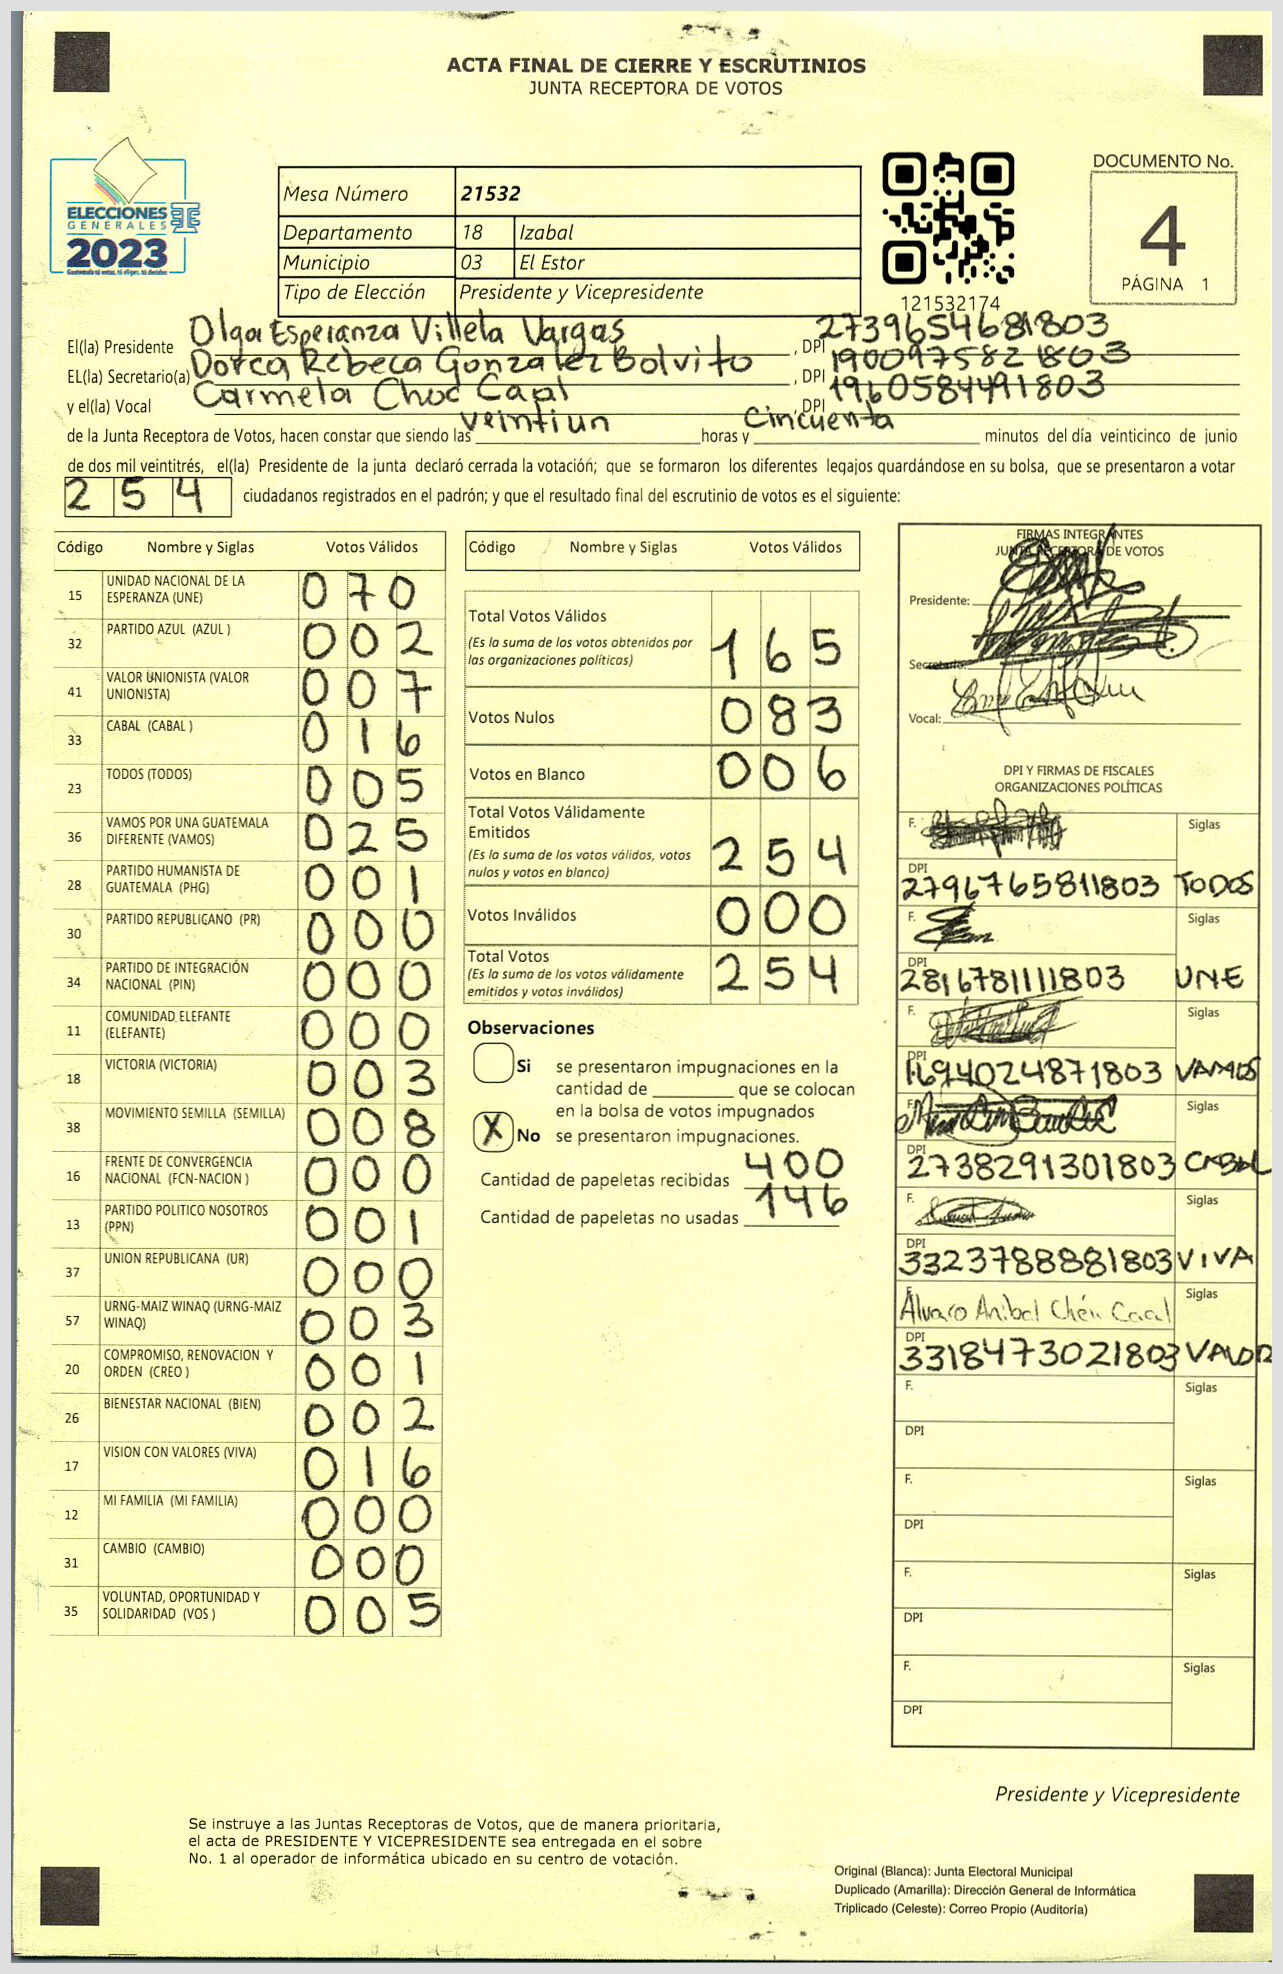 ACTA FINAL DE CIERRE Y ESCRUTINIOS
JUNTA RECEPTORA DE VOTOS
ELECCIONES
GENERALES
2023
Mesa Número 21532
Departamento 18 Izabal
Municipio 03 El Estor
Tipo de Elección Presidente y Vicepresidente
121532174
DOCUMENTO No.
4
PÁGINA 1
El(la) Presidente Olga Esperanza Villela Vargas , DPI 2739654681803
EL(la) Secretario(a) Dorca Rebeca Gonzalez Bolvito , DPI 1900975821803
y el(la) Vocal Carmela Choc Caal , DPI 1960584491803
de la Junta Receptora de Votos, hacen constar que siendo las veintiun horas y Cincuenta minutos del día veinticinco de junio
de dos mil veintitrés, el(la) Presidente de la junta declaró cerrada la votación; que se formaron los diferentes legajos quardándose en su bolsa, que se presentaron a votar
254 ciudadanos registrados en el padrón; y que el resultado final del escrutinio de votos es el siguiente:
Código Nombre y Siglas Votos Válidos
15 UNIDAD NACIONAL DE LA ESPERANZA (UNE) 070
32 PARTIDO AZUL (AZUL ) 002
41 VALOR UNIONISTA (VALOR UNIONISTA) 007
33 CABAL (CABAL ) 016
23 TODOS (TODOS) 005
36 VAMOS POR UNA GUATEMALA DIFERENTE (VAMOS) 025
28 PARTIDO HUMANISTA DE GUATEMALA (PHG) 001
30 PARTIDO REPUBLICANO (PR) 000
34 PARTIDO DE INTEGRACIÓN NACIONAL (PIN) 000
11 COMUNIDAD ELEFANTE (ELEFANTE) 000
18 VICTORIA (VICTORIA) 003
38 MOVIMIENTO SEMILLA (SEMILLA) 008
16 FRENTE DE CONVERGENCIA NACIONAL (FCN-NACION ) 000
13 PARTIDO POLITICO NOSOTROS (PPN) 001
37 UNION REPUBLICANA (UR) 000
57 URNG-MAIZ WINAQ (URNG-MAIZ WINAQ) 003
20 COMPROMISO, RENOVACION Y ORDEN (CREO ) 001
26 BIENESTAR NACIONAL (BIEN) 002
17 VISION CON VALORES (VIVA) 016
12 MI FAMILIA (MI FAMILIA) 000
31 CAMBIO (CAMBIO) 000
35 VOLUNTAD, OPORTUNIDAD Y SOLIDARIDAD (VOS ) 005
Código Nombre y Siglas Votos Válidos
Total Votos Válidos 165
(Es la suma de los votos obtenidos por
las organizaciones políticas)
Votos Nulos 083
Votos en Blanco 006
Total Votos Válidamente
Emitidos 254
(Es la suma de los votos válidos, votos
nulos y votos en blanco)
Votos Inválidos 000
Total Votos 254
(Es la suma de los votos válidamente
emitidos y votos inválidos)
Observaciones
Si se presentaron impugnaciones en la
cantidad de ________ que se colocan
en la bolsa de votos impugnados
X No se presentaron impugnaciones.
Cantidad de papeletas recibidas 400
Cantidad de papeletas no usadas 146
FIRMAS INTEGRANTES
JUNTA RECEPTORA DE VOTOS
Presidente:
Secretario:
Vocal:
DPI Y FIRMAS DE FISCALES
ORGANIZACIONES POLÍTICAS
F. Siglas
DPI 2796765811803 TODOS
F. Siglas
DPI 2816781111803 UNE
F. Siglas
DPI 1694024871803 VAMOS
F. Siglas
DPI 2738291301803 CABAL
F. Siglas
DPI 3323788881803 VIVA
F. Alvaro Anibal Chén Caal Siglas
DPI 3318473021803 VALOR
F. Siglas
DPI
F. Siglas
DPI
F. Siglas
DPI
F. Siglas
DPI
Presidente y Vicepresidente
Se instruye a las Juntas Receptoras de Votos, que de manera prioritaria,
el acta de PRESIDENTE Y VICEPRESIDENTE sea entregada en el sobre
No. 1 al operador de informática ubicado en su centro de votación.
Original (Blanca): Junta Electoral Municipal
Duplicado (Amarilla): Dirección General de Informática
Triplicado (Celeste): Correo Propio (Auditoría)